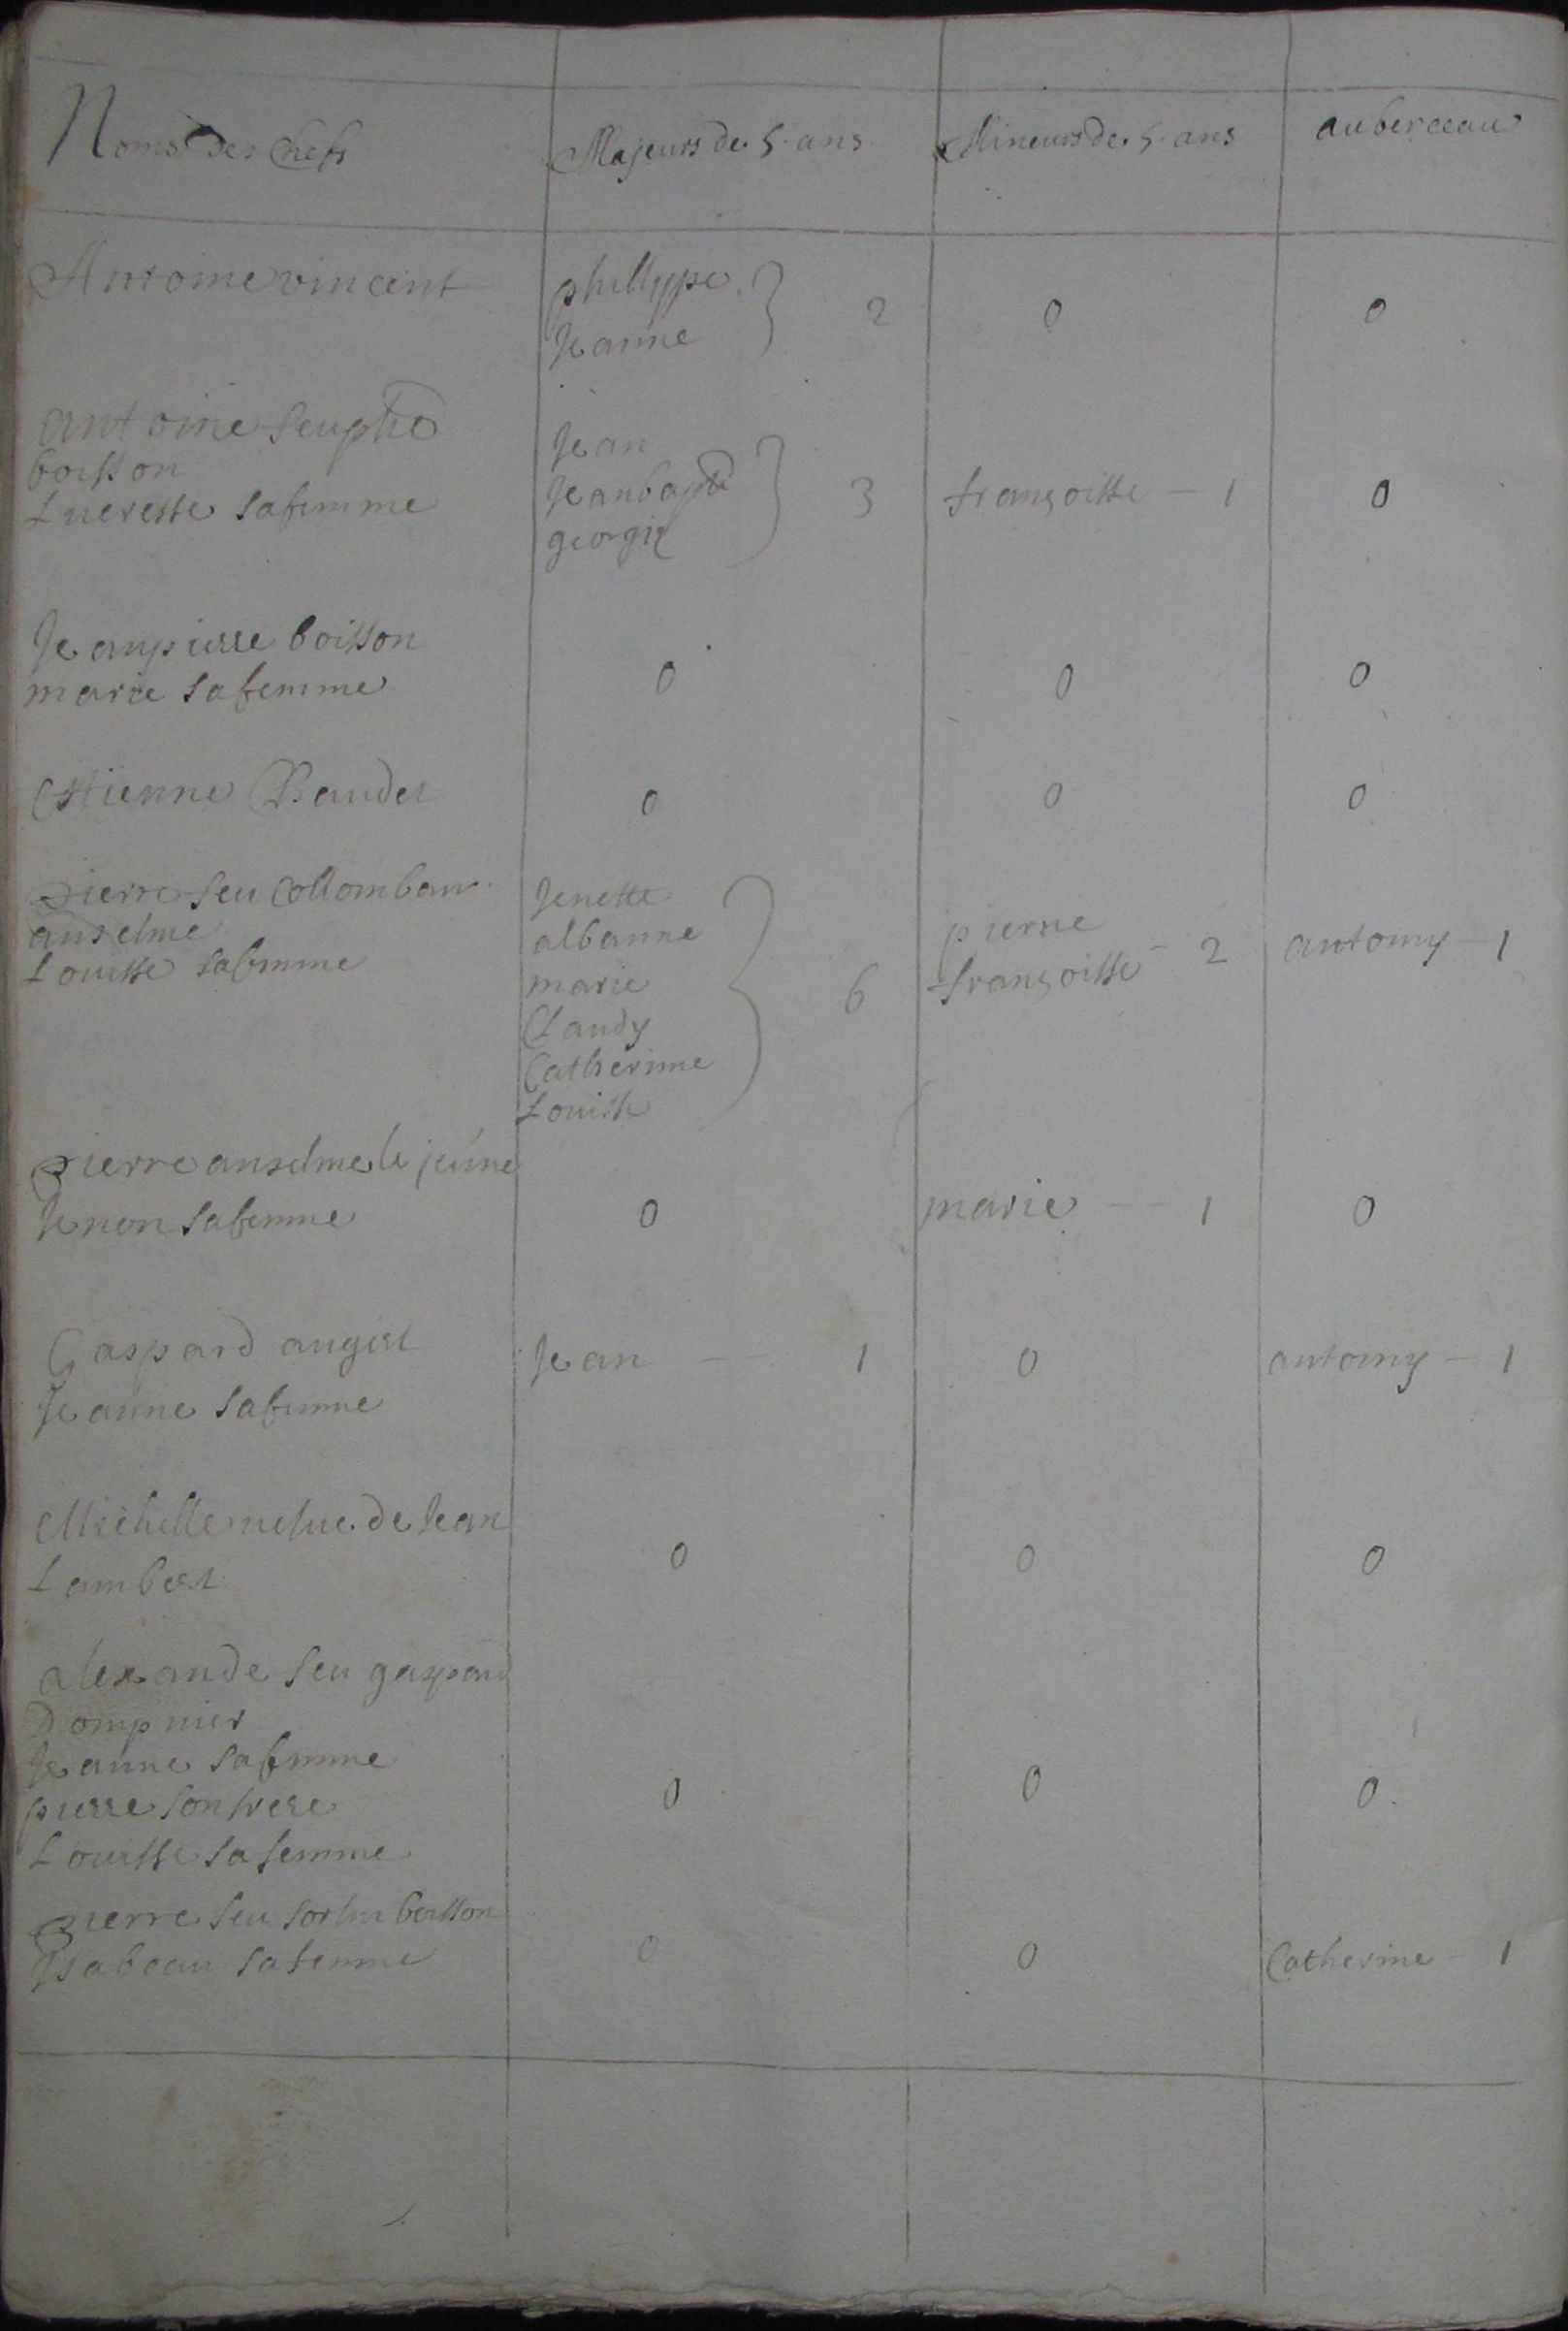 Noms des Chefs
Majeurs de 5. ans
Mineurs de 5. ans
au berceau
Antoine vincent
phillyppe
Jeanne
2
0
0
antoine feu phe
boisson
Lucresse sa femme
Jean
Jean bapte
georgie
3
françoisse - 1
0
Jean pierre boisson
marie sa femme
0
0
0
Estienne
0
0
0
pierre feu Collomban
anselme
Louisse sa femme
Jenette
albanne
marie
Claudy
Catherinne
Louisse
6
pierre
françoisse - 2
antoiny - 1
pierre anselme le jeune
Jenon sa femme
0
marie - - 1
0
Gaspard augert
Jeanne sa femme
Jean - - 1
0
antoiny - 1
Michelle vefue de Jean
Lambert
0
0
0
alexande feu gaspard
Dompnier
Jeanne sa femme
pierre son frere
Louisse sa femme
0
0
0
pierre feu sorlin boisson
Ysabeau sa femme
0
0
Catherine - 1